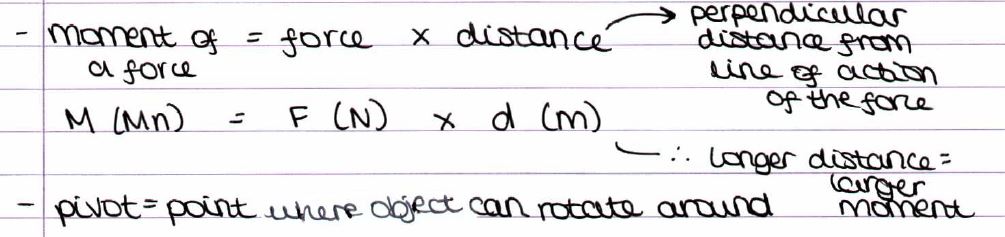 - moment of = force × distance → perpendicular
a force distance from
line of action
of the force
M (Mn) = F (N) × d (m)
∴ longer distance =
larger
- pivot = point where object can rotate around moment